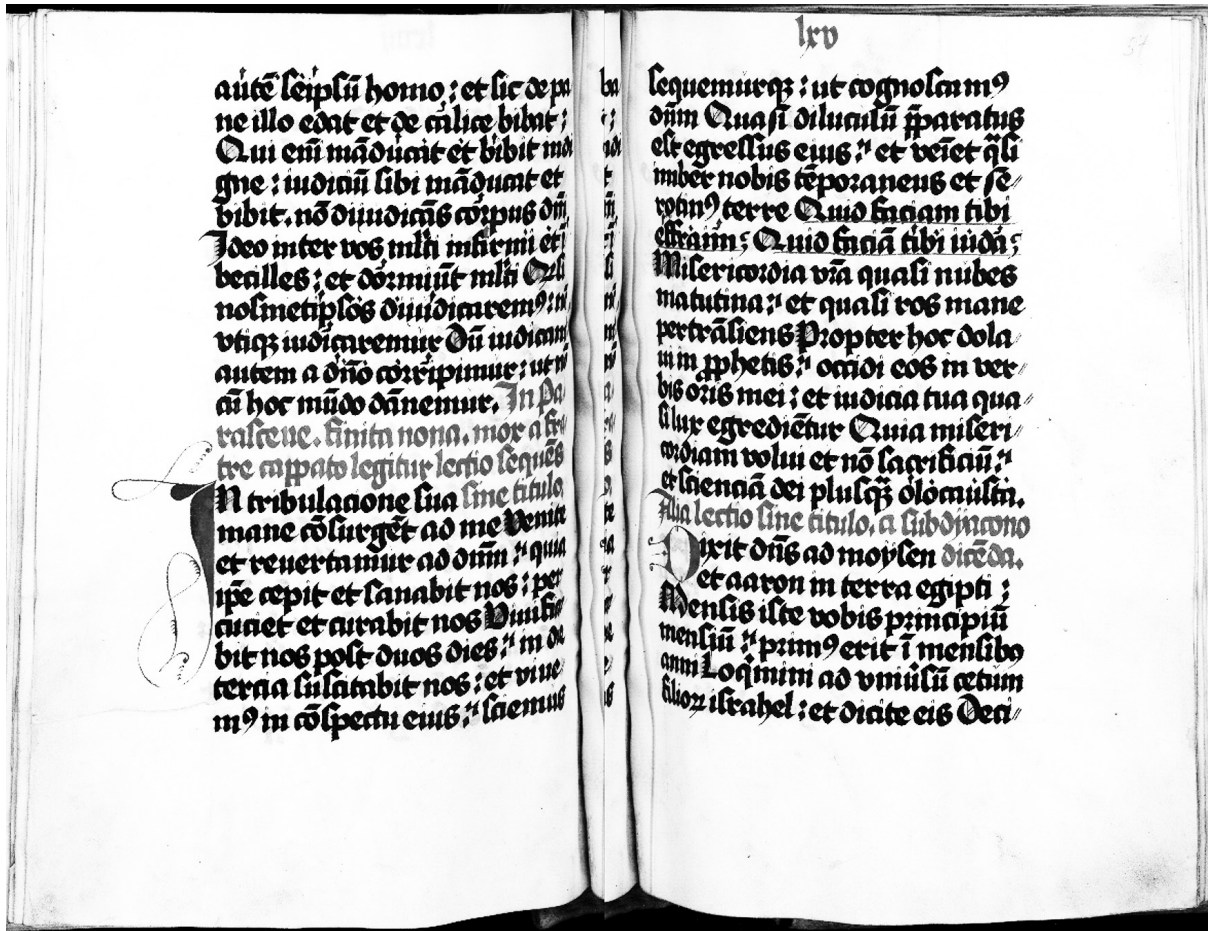 autē seip̄sū homo : et sic de pa
ne illo edat et de calice bibat :
Qui eni māducat et bibit indi
gne : iudiciū sibi māducat et
bibit . nō diiudicās corpus dnī
Ideo inter vos mlti infirmi et ī
becilles : et dormiūt mlti Qsi
nosmetip̄sos diiudicarem⁹ : nō
vtiqꝫ iudicaremur Dū iudicam
autem a dnō corripimur : ut nō
cū hoc mūdo dānemur . In Pa
rasceue . finita nona . mox a fra
tre cappato legitur lectio sequēs
In tribulacione sua sine titulo
mane cōsurgēt ad me Venite
et reuertamur ad dnm : quia
ip̄e cepit et sanabit nos : per
cuciet et curabit nos Viuifica
bit nos post duos dies : in die
tercia suscitabit nos : et viue
m⁹ in cōspectu eius : sciemus
lxv
sequemurqꝫ : ut cognoscam⁹
dnm Quasi diluculū p̄paratus
est egressus eius : et veīet q̄si
imber nobis tēporaneus et se
rotin⁹ terre Quid faciam tibi
effraim ; Quid faciā tibi iuda ;
Misericordia vrā quasi nubes
matutina : et quasi ros mane
pertrāsiens Propter hoc dola
ui in ꝓphetis : occidi eos in ver
bis oris mei : et iudicia tua qua
si lux egrediētur Quia miseri
cordiam volui et nō sacrificiū :
et scienciā dei plusqꝫ olocausta .
Alia lectio sine titulo . a subdyacono
Dixit dn̄s ad moysen dicēda .
et aaron in terra egipti ;
Mensis iste vobis principiū
mensiū : prim⁹ erit ī mensibꝯ
anni Loqimini ad vniūsū cetum
filioꝝ israhel : et dicite eis Deci